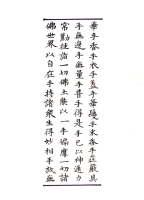 華手香手衣手蓋手華鬘手末香手莊嚴具
手無邊手無量手普手得是手已以神通力
常勤往詣一切佛土能以一手遍摩一切諸
佛世界以自在手持諸眾生得妙相手放無